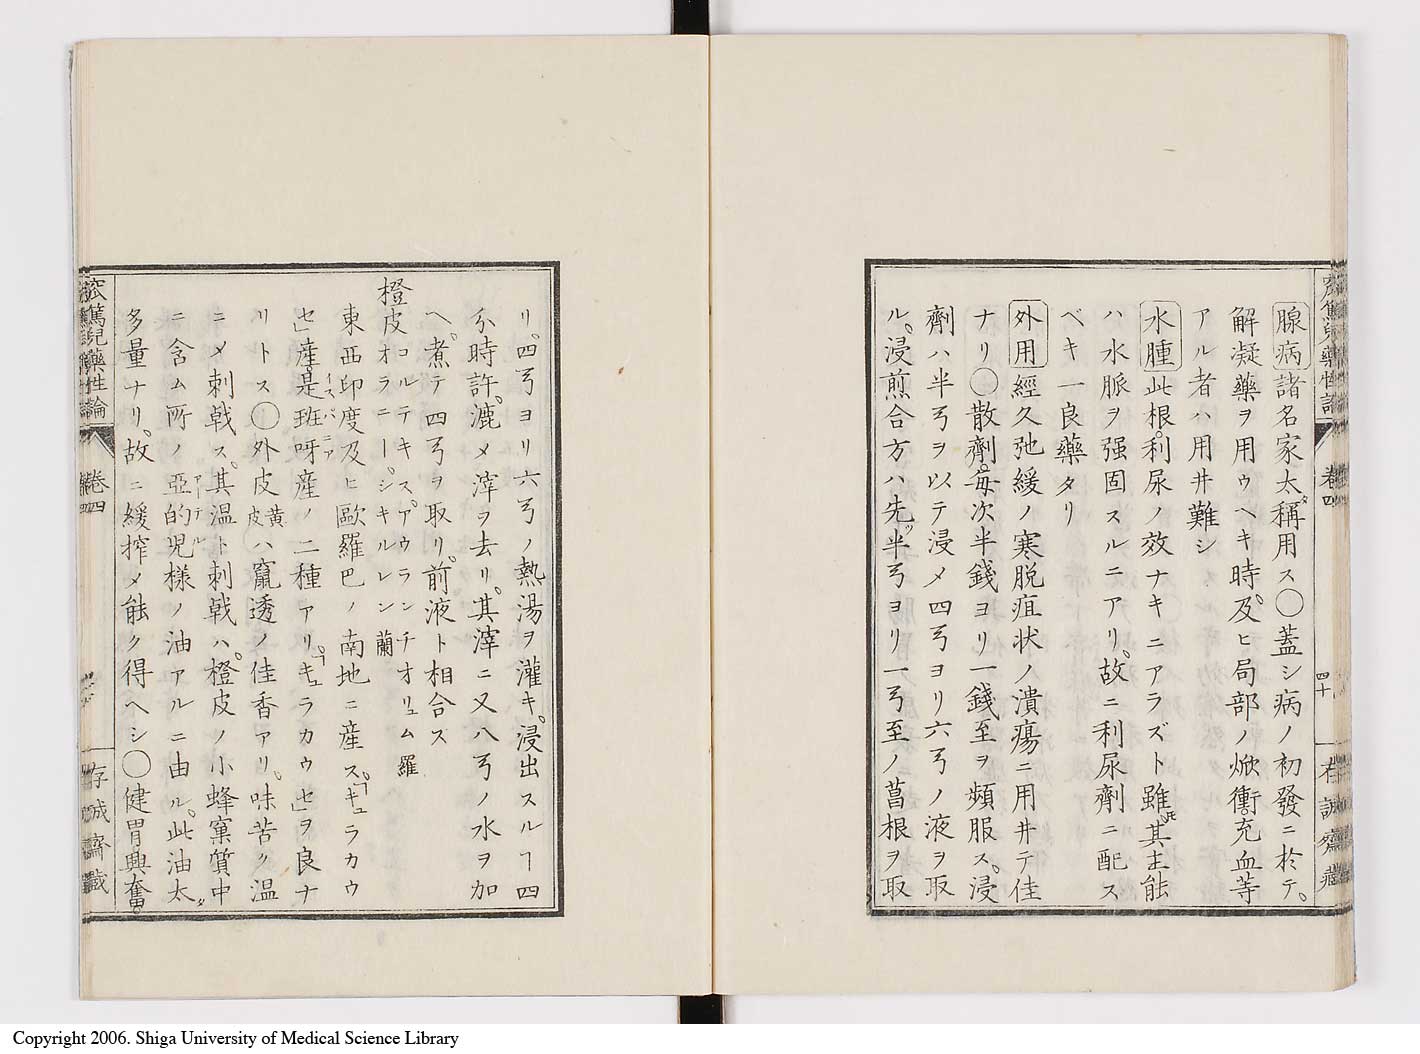 腺病諸名家太稱用ス〇蓋シ病ノ初發ニ於テ。
解凝藥ヲ用ウヘキ時。及ヒ局部ノ焮衝充血等
アル者ハ用井難シ
水腫此根。利尿ノ效ナキニアラズト雖𪜈其主能
ハ水脈ヲ强固スルニアリ。故ニ利尿劑ニ配ス
ベキ一良藥タリ
外用經久弛緩ノ寒脱疽状ノ潰瘍ニ用井テ佳
ナリ〇散劑。每次半錢ヨリ一錢至ヲ頻服ス。浸
劑ハ半弓ヲ以テ浸メ四弓ヨリ六弓ノ液ヲ取
ル。浸煎合方ハ先ツ半弓ヨリ一弓至ノ菖根ヲ取
竅篤兒藥性論
卷四
四十
存誠齋藏
リ。四弓ヨリ六弓ノ熱湯ヲ灌キ。浸出スルヿ四
分時許。漉メ滓ヲ去リ。其滓ニ又八弓ノ水ヲ加
ヘ。煮テ四弓ヲ取リ。前液ト相合ス
橙皮コルテキス。アウランチオリュム羅
オラニー。シキルレン蘭
東西印度及ヒ歐羅巴ノ南地ニ産ス。「キュラカウ
セ」産。是班呀産ノ二種アリ。「キュラカウセ」ヲ良ナ
イスパニア
リトス〇外皮黄皮ハ竄透ノ佳香アリ。味苦ク温
ニメ刺戟ス。其温ト刺戟ハ。橙皮ノ小蜂窠質中
ニ含ム所ノ亞的児様ノ油アルニ由ル。此油太タ
アーテル
多量ナリ。故ニ緩搾メ能ク得ヘシ〇健胃。興奮。
竅篤兒藥性論
卷四
存誠齋藏
Copyright 2006. Shiga University of Medical Science Library